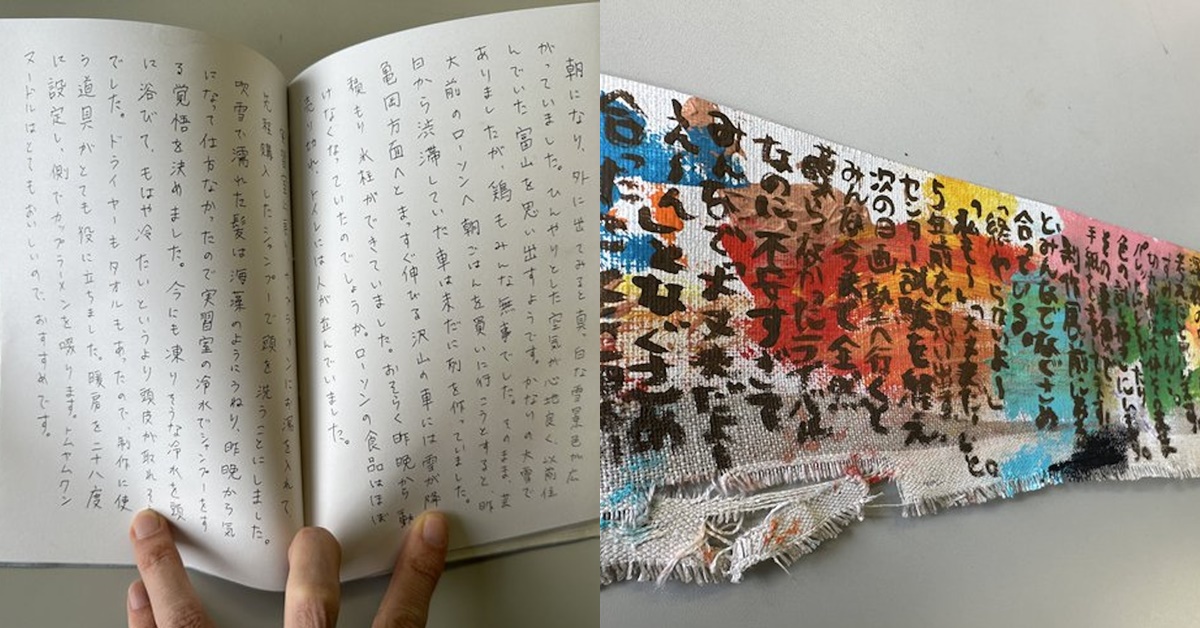 朝になり、外に出てみると真っ白な雪景色が広
がっていました。ひんやりとした空気が心地良く、以前住
んでいた富山を思い出すようです。かなりの大雪で
ありましたが、鶏もみんな無事でした。そのまま、芸
大前のローソンへ朝ごはんを買いに行こうとすると昨
日から渋滞していた車は未だに列を作っていました。
亀岡方面へとまっすぐ伸びる沢山の車には雪が降り
積もり氷柱ができていました。おそらく昨晩から動
けなくなっていたのでしょうか。ローソンの食品はほぼ
売り切れ、トイレには人が並んでいました。
お湯を入れて、
先程購入したシャンプーで頭を洗うことにしました。
吹雪で濡れた髪は海藻のようにうねり、昨晩から気
になって仕方なかったので実習室の冷水でシャンプーをす
る覚悟を決めました。今にも凍りそうな冷水を頭
に浴びて、もはや冷たいというより頭皮が取れそう
でした。ドライヤーもタオルもあったので、制作に使
う道具がとても役に立ちました。暖房を二十八度
に設定し、側でカップラーメンを啜ります。トムヤムクン
ヌードルはとてもおいしいので、おすすめです。
手紙
色の
制作展の前になると
とみんなでなぐさめ
合っている。
「絵やら作よー」
「私もーい」「大丈夫だ」と。
5年前を思い出す
センター試験を終え、
次の日画塾へ行くと
みんな今まで全然
なのに、不安すぎて
みんなで大丈夫だよと
えーんとなぐさめ
合った